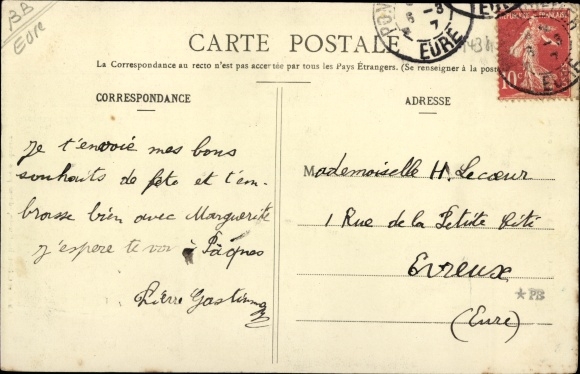 BB
Eure
EURE
CARTE POSTALE
La Correspondance au recto n'est pas acceptée par tous les Pays Étrangers. (Se renseigner à la poste
CORRESPONDANCE
Je t'envoie mes bons
souhaits de fete et t'em-
brasse bien avec Marguerite
j'espere te voir à Pâques
Pierre
ADRESSE
Mademoiselle H. Lecœur
1 Rue de la Petite Cité
Evreux
(Eure)
*PB
10c